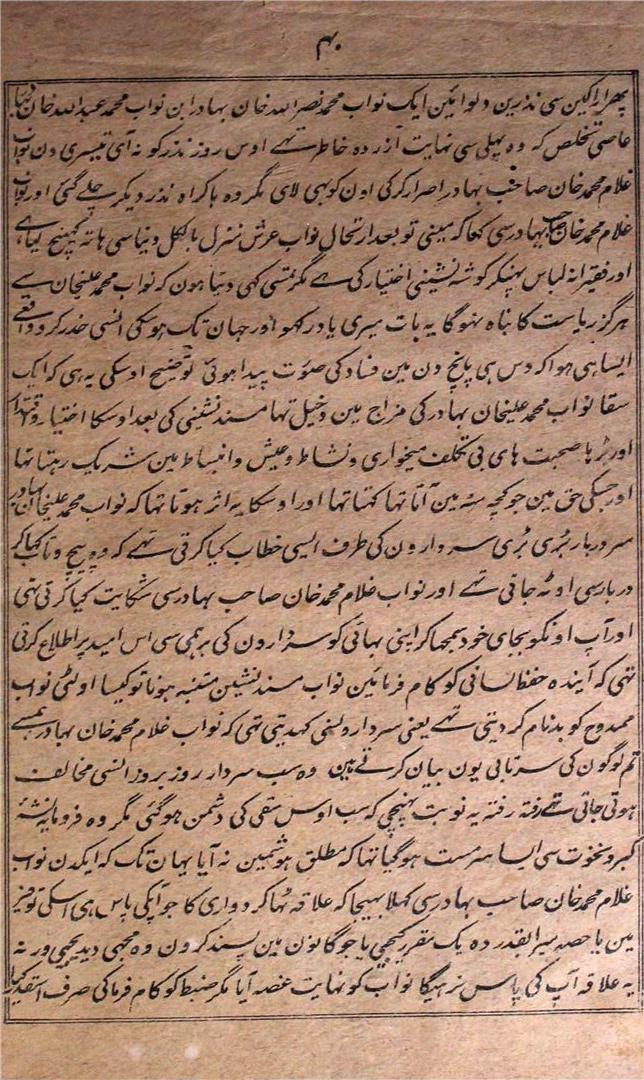 ۴۰
پھر اراکین سی نذرین دلوائین ایک نواب محمد نصر اللہ خان بہادر ابن نواب محمد عبد اللہ خان
عاصی تخلص کہ وہ پہلی سی نہایت آزردہ خاطر تہے اوس روز نذر کو نہ آی تیسری دن نواب
غلام محمد خان صاحب بہادر اصرار کرکی اون کو بہی لای مگر وہ باکراہ نذر دیکر چلے گئی اور نواب
غلام محمد خان صاحب بہادر سی کہا کہ مینی تو بعد ارتحال نواب عرش منزل بالکل دنیا سی ہاتہ کہینچ لیا ہے
اور فقیرانہ لباس پہنکر گوشہ نشینی اختیار کی ہے مگر تمسی کہی دیتا ہون کہ نواب محمد علیخان سے
ہرگز ریاست کا نباہ نہوگا یہ بات میری یاد رکہو اور جہان تک ہوسکی انسی حذر کرو واقعے
ایسا ہی ہوا کہ دس ہی پانچ دن مین فساد کی صورت پیدا ہوئی توضیح اوسکی یہ ہی کہ ایک
سقا نواب محمد علیخان بہادر کی مزاج مین دخیل تہا مسند نشینی کی بعد اوسکا اختیار و اقتدار
اور بڑہا صحبت ہای بی تکلف میخواری و نشاط و عیش و انبساط مین شریک رہتا تہا
اور جسکی حق مین جو کچہ منہ مین آتا تہا کہتا تہا اور اوسکا یہ اثر ہوتا تہا کہ نواب محمد علیخان بہادر
سر دربار بڑی بڑی سردارون کی طرف ایسی خطاب کیا کرتی تہے کہ وہ پیچ و تاب کہا کر
دربار سی اوٹہ جاتی تہے اور نواب غلام محمد خان صاحب بہادر سی شکایت کیا کرتی تہی
اور آپ اونکو بجای خود سمجہا کر اپنی بہائی کو سردارون کی برہمی سی اس امید پر اطلاع کرتی
تہی کہ آیندہ حفظ لسانی کو کام فرمائین نواب مسند نشین متنبہ ہونا تو کیسا اولٹی نواب
ممدوح کو بدنام کر دیتی تہے یعنی سردارونسی کہدیتی تہی کہ نواب غلام محمد خان بہادر ہمسے
تم لوگون کی سرتابی یون بیان کرتے ہین وہ سب سردار روز بروز انسی مخالف
ہوتی جاتی تہے رفتہ رفتہ یہ نوبت پہنچی کہ سب اوس سقی کی دشمن ہوگئی مگر وہ فرومایہ نشۂ
کبر و نخوت سی ایسا سرمست ہوگیا تہا کہ مطلق ہوشمین نہ آیا یہان تک کہ ایکدن نواب
غلام محمد خان صاحب بہادر سی کہلا بہیجا کہ علاقہ ٹہاکر دواری کا جو آپکی پاس ہی اسکی توفیر
مین یا حصہ میرا بقدر دہ یک مقرر کیجیی یا جو گانون مین پسند کرون وہ مجہی دیدیجیی ورنہ
یہ علاقہ آپ کی پاس نرہیگا نواب کو نہایت غصہ آیا مگر ضبط کو کام فرما کی صرف اسقدر کہا